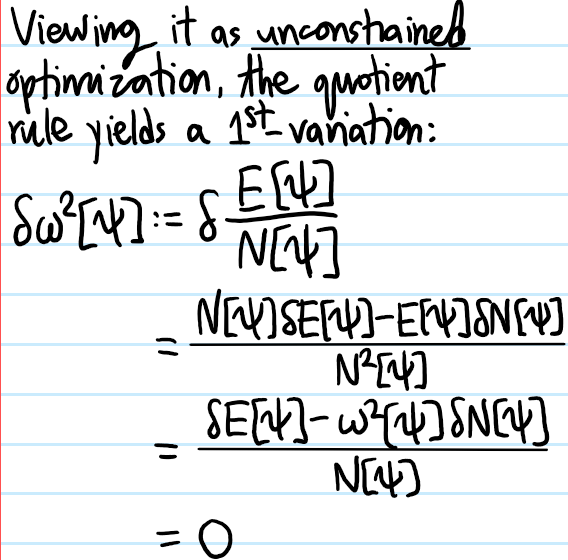 Viewing it as unconstrained
optimization, the quotient
rule yields a 1st-variation:
δω²[ψ] := δ E[ψ]/N[ψ]
= (N[ψ]δE[ψ]-E[ψ]δN[ψ])/N²[ψ]
= (δE[ψ]-ω²[ψ]δN[ψ])/N[ψ]
= 0